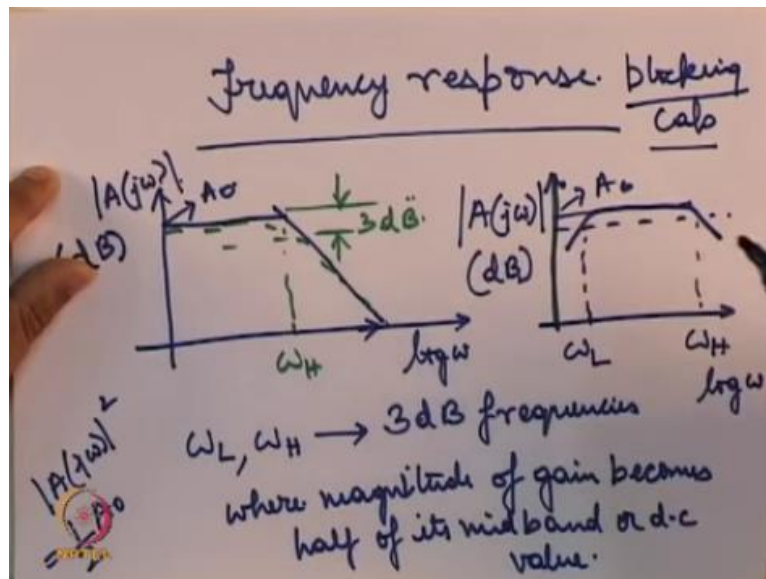 Frequency response. blocking
caps
|A(jω)|
A0
(dB)
3dB
ωH
log ω
|A(jω)|
A0
(dB)
ωL
ωH
log ω
ωL, ωH → 3dB frequencies
where magnitude of gain becomes
half of its midband or d.c
value.
|A(jω)|²
A0
NPTEL